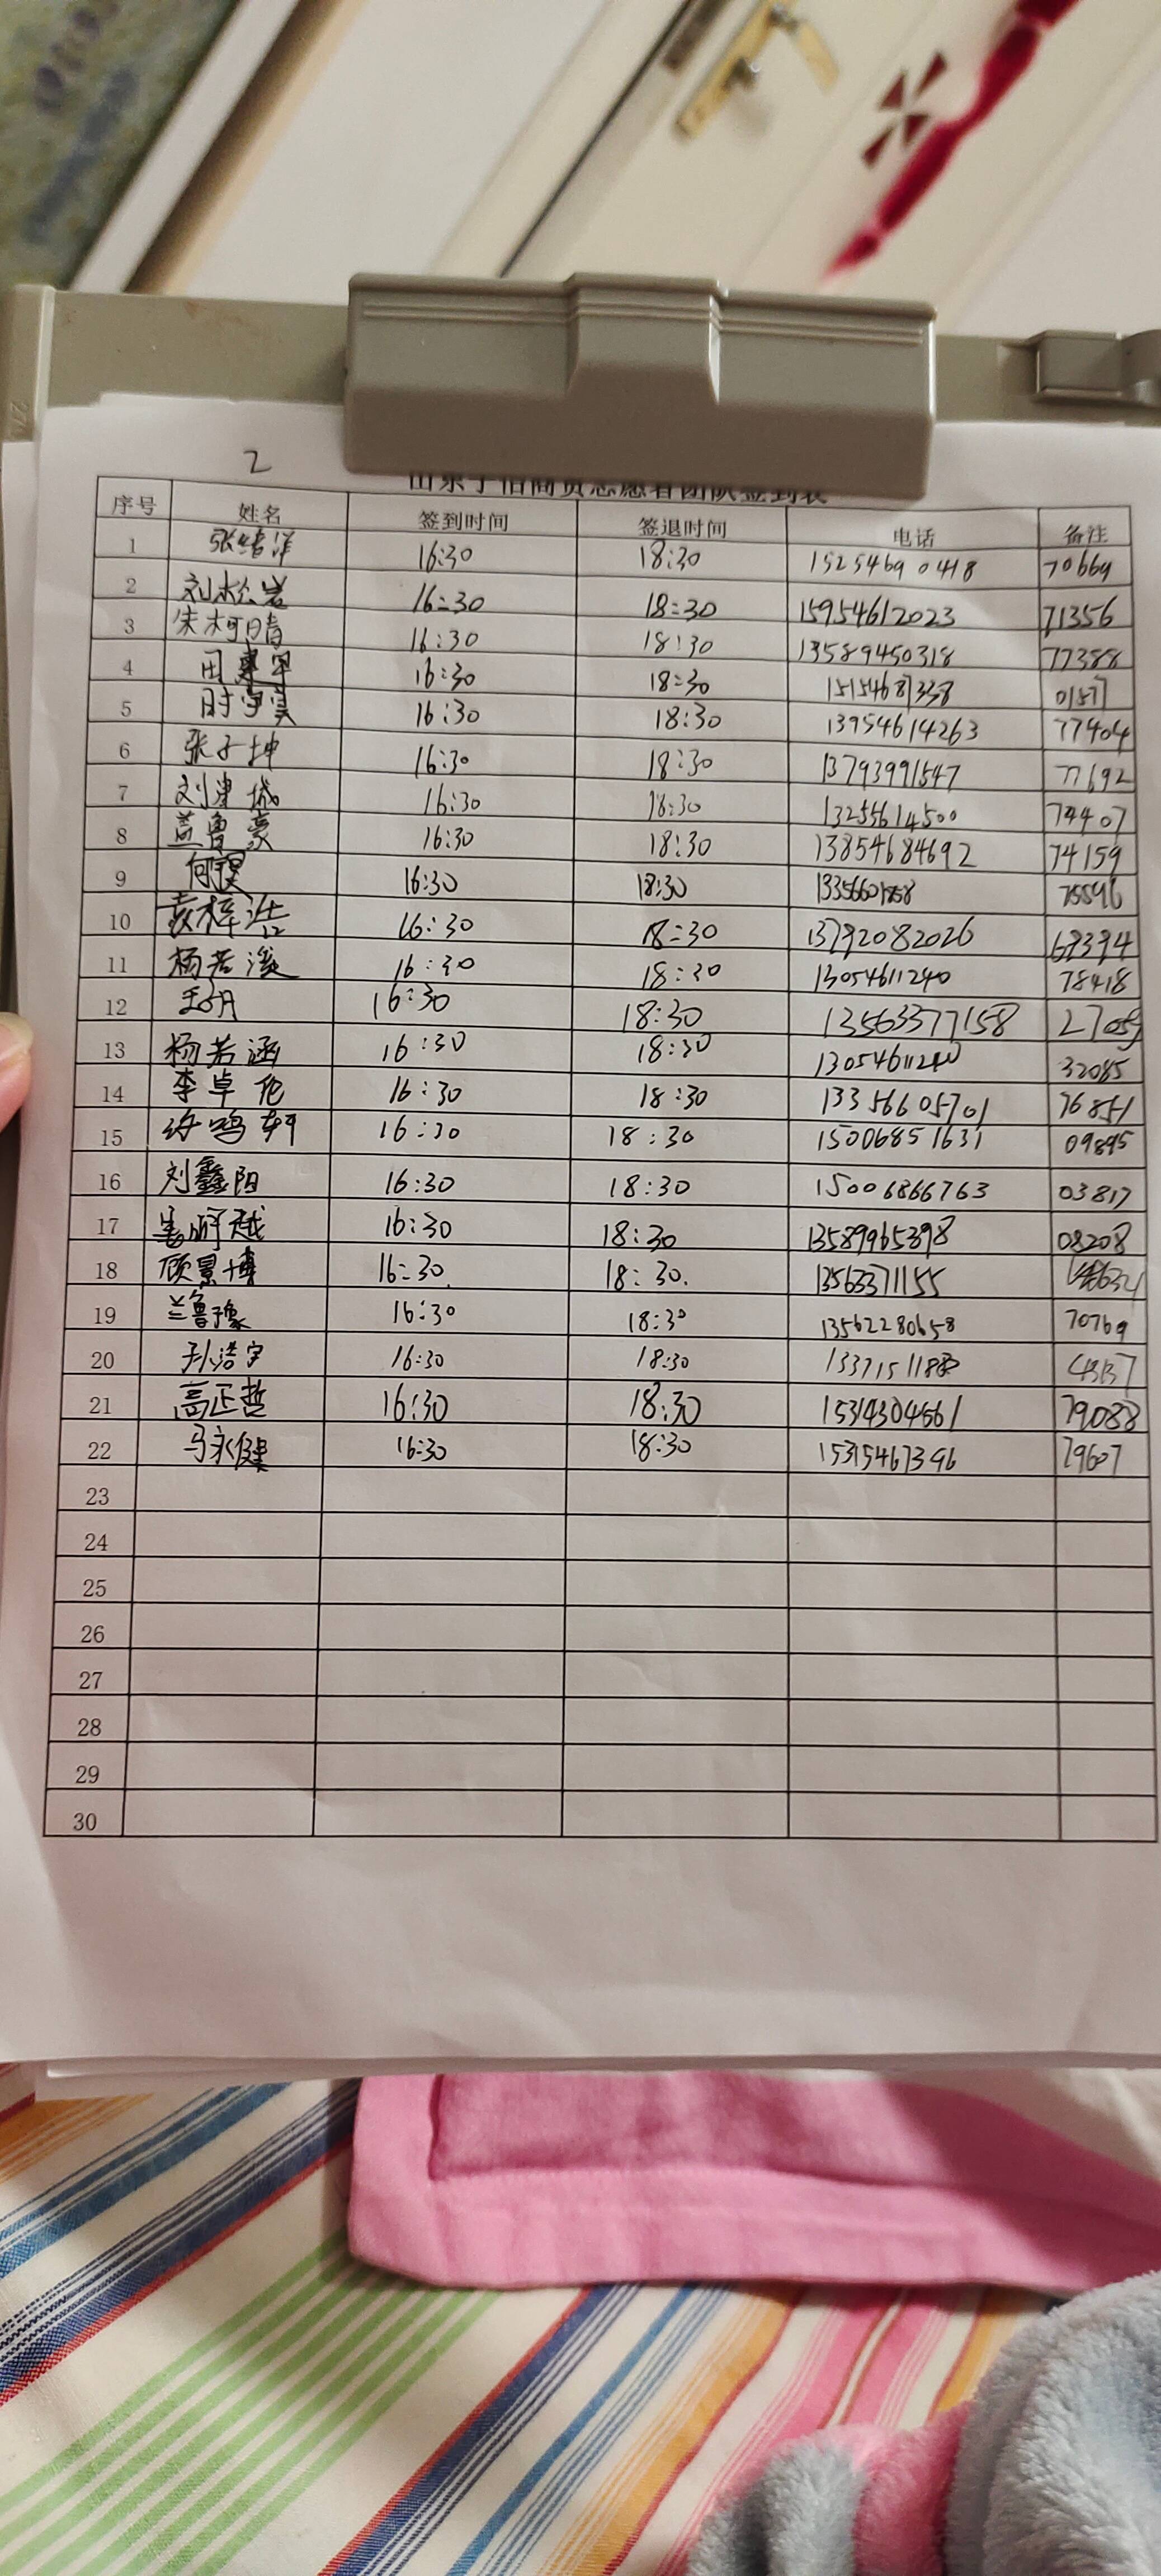 2
山东子怡商贸志愿者团队签到表
序号 姓名 签到时间 签退时间 电话 备注
1 张靖洋 16:30 18:30 15254690418 70669
2 刘松岩 16:30 18:30 15954612023 71356
3 朱柯晴 16:30 18:30 13589450318 77388
4 田 16:30 18:30 15154687338 01577
5 时 16:30 18:30 13954614263 77404
6 张子坤 16:30 18:30 13793991547 77692
7 刘津城 16:30 18:30 13255614500 74407
8 盖鲁豪 16:30 18:30 13854684692 74159
9 16:30 18:30 75596
10 袁梓浩 16:30 18:30 13792082026 69394
11 杨若溪 16:30 18:30 13054611240 78418
12 16:30 18:30 13563377158
13 杨若涵 16:30 18:30 13054611240 32085
14 李卓伦 16:30 18:30 13356605701 76851
15 许鸣轩 16:30 18:30 15006851631 09895
16 刘鑫阳 16:30 18:30 15006866763 03817
17 16:30 18:30 13589965398 08208
18 顾景博 16:30 18:30. 13563371155
19 兰鲁豫 16:30 18:30 13562280658 70769
20 孙浩宇 16:30 18:30
21 高正哲 16:30 18:30 15314304561 79088
22 马永健 16:30 18:30 15315467396 79607
23
24
25
26
27
28
29
30